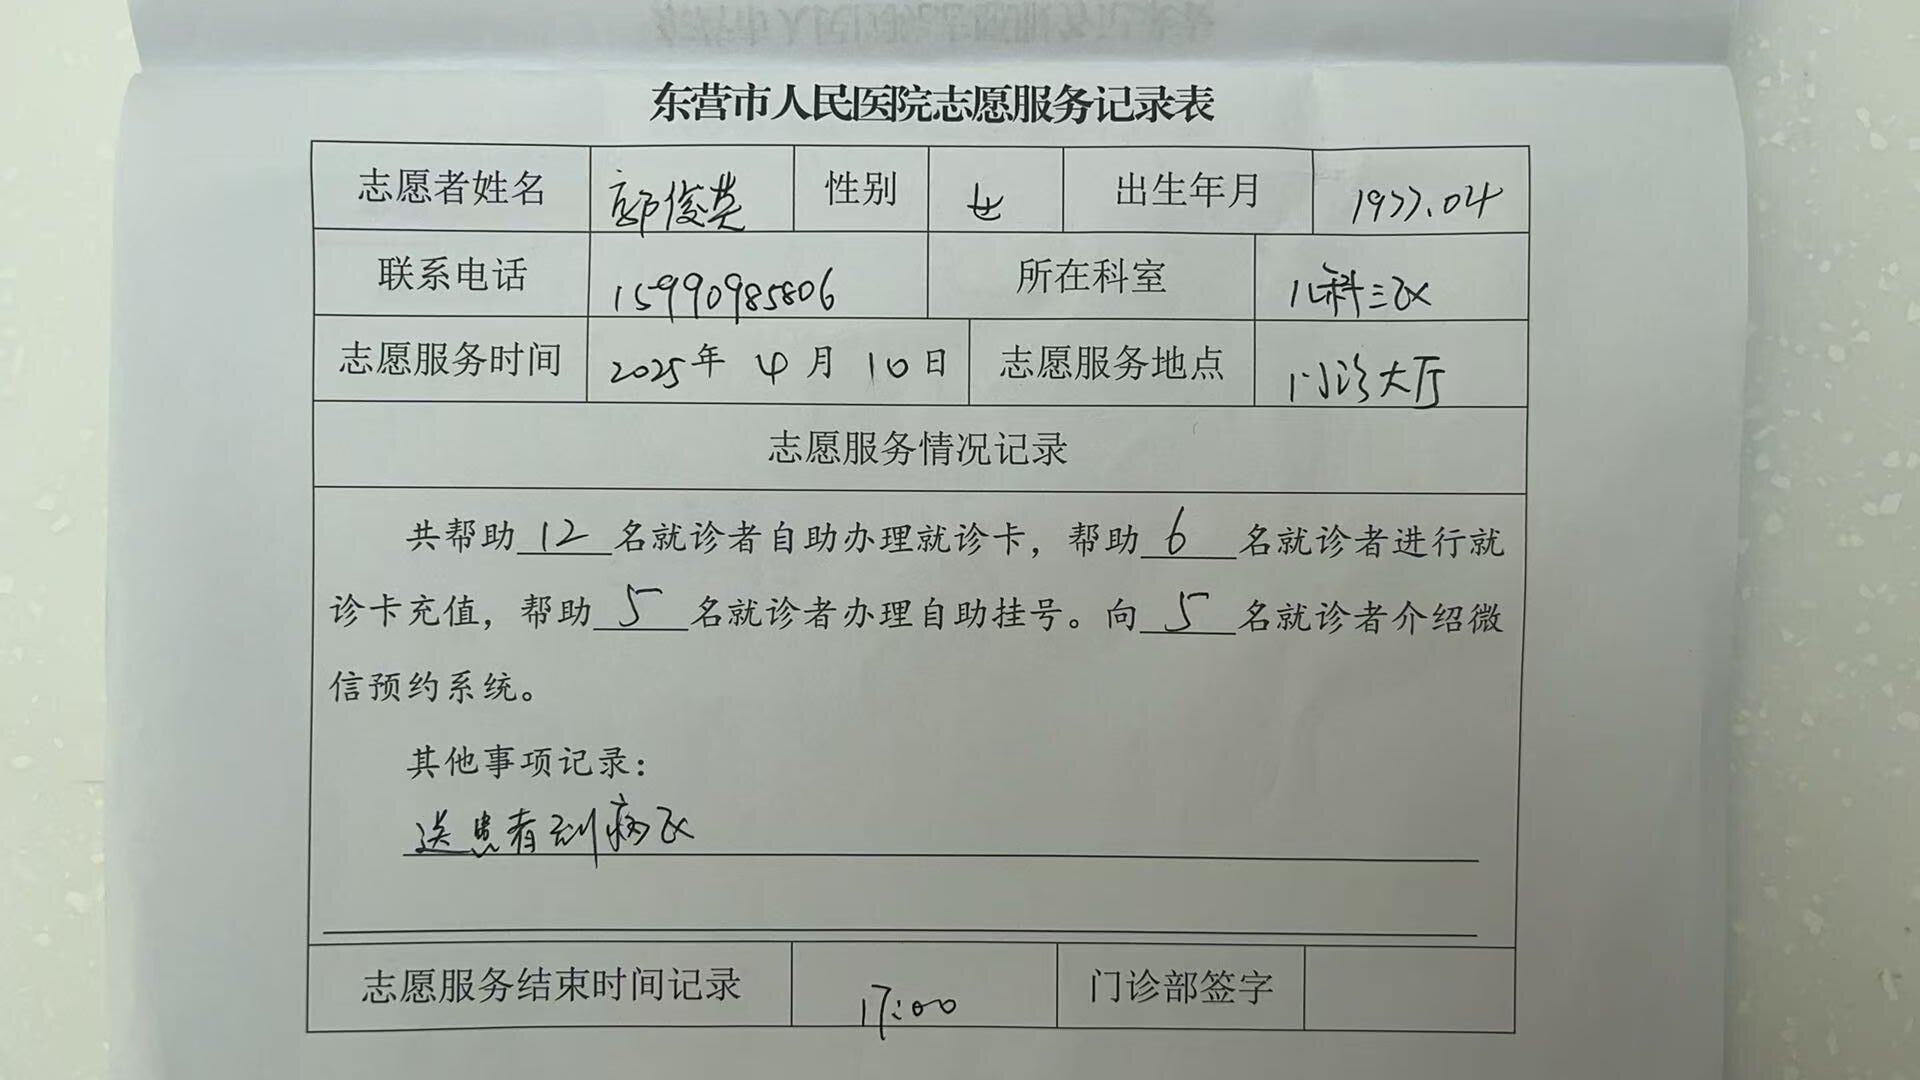 东营市人民医院志愿服务记录表
志愿者姓名 郭俊英 性别 女 出生年月 1977.04
联系电话 15990985806 所在科室 儿科三区
志愿服务时间 2025年 4月 10日 志愿服务地点 门诊大厅
志愿服务情况记录
共帮助 12 名就诊者自助办理就诊卡，帮助 6 名就诊者进行就
诊卡充值，帮助 5 名就诊者办理自助挂号。向 5 名就诊者介绍微
信预约系统。
其他事项记录：
送患者到病区
志愿服务结束时间记录 17:00 门诊部签字